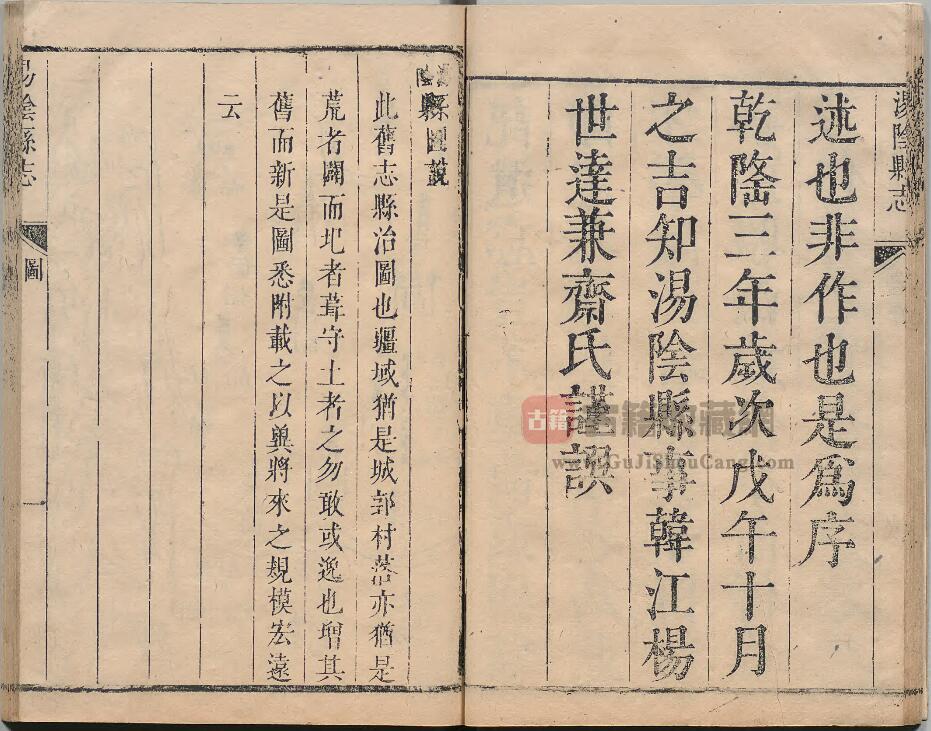 湯陰縣志
述也非作也是爲序
乾隆三年歲次戊午十月
之吉知湯陰縣事韓江楊
世達兼齋氏謹譔
縣圖説
此舊志縣治圖也疆域猶是城郭村落亦猶是
荒者闢而圮者葺守土者之勿敢或逸也增其
舊而新是圖悉附載之以兾將來之規模宏遠
云
湯陰縣志
圖
一
古籍
古籍收藏網
www.GuJiShouCang.com